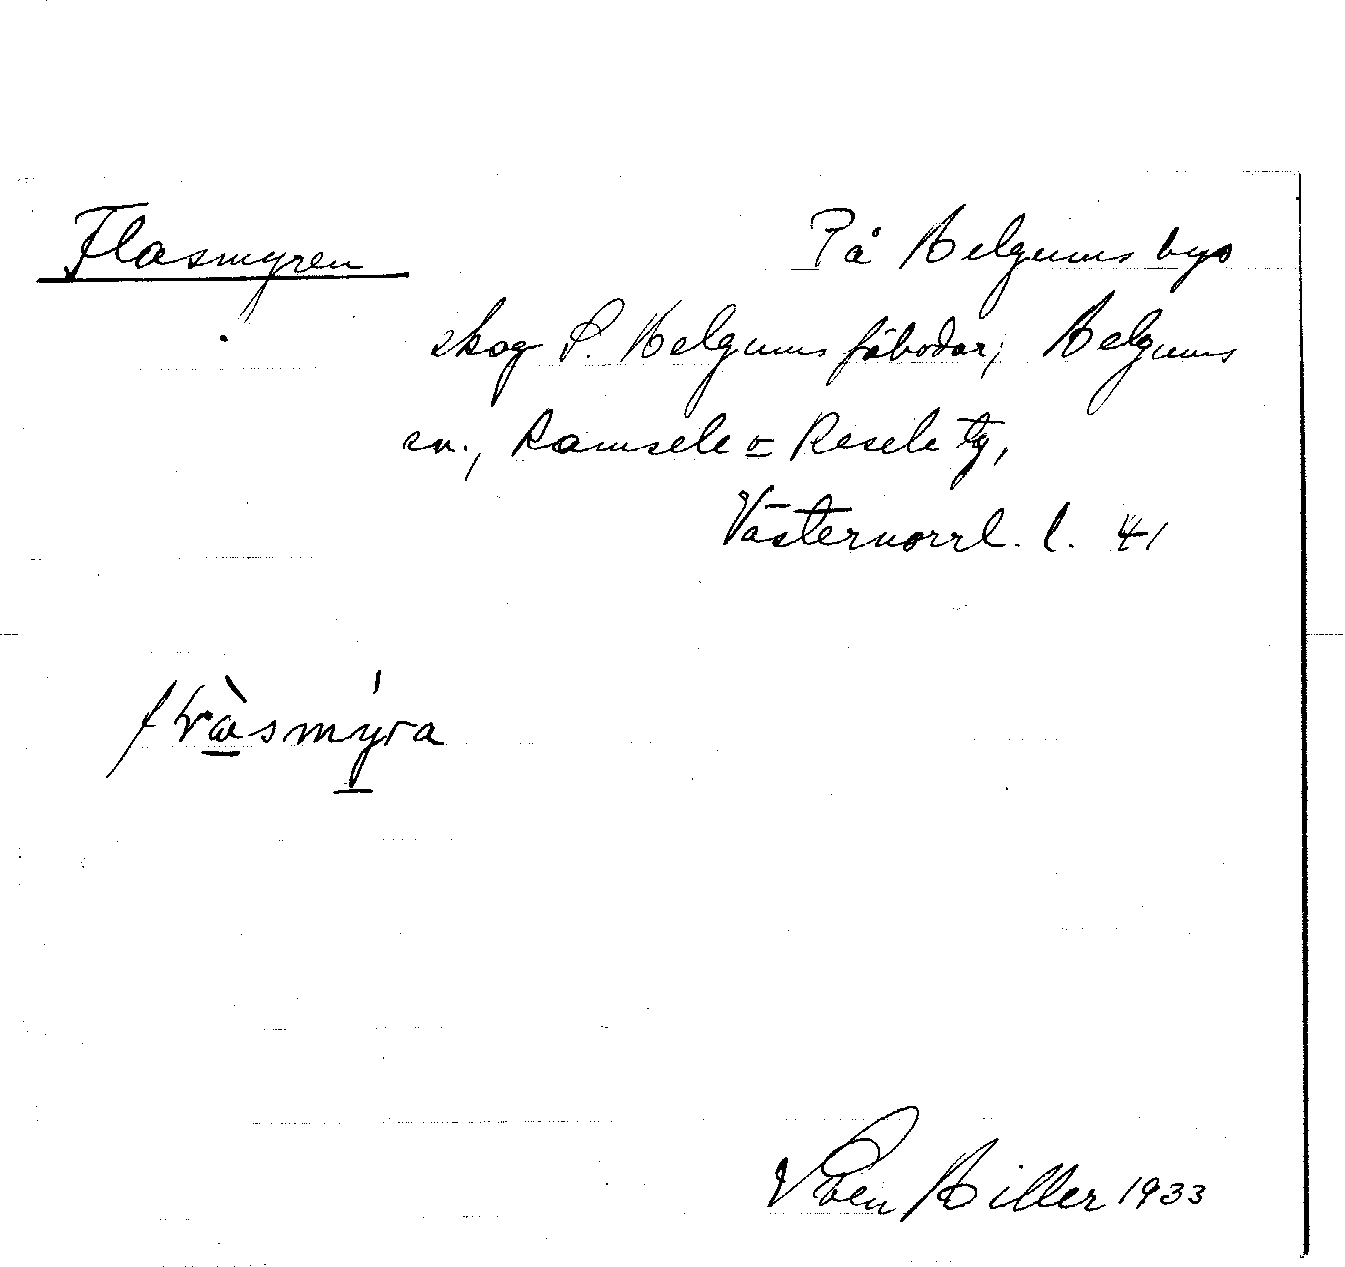 Flasmyren På Helgums bys
skog S. Helgums fäbodar, Helgums
sn., Ramsele o Resele tg,
Västernorrl. l. 41
Sven Hiller 1933